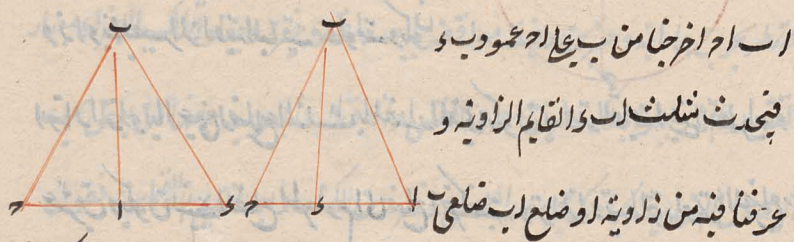 ب
ب
ا ب ا ح اخرجنا من ب على ا ح عمود ب ء
فيحدث مثلث ا ب ء القايم الزاوية و
عرفنا فيه من زاوية ا و ضلع ا ب ضلعي ب
ح ا ء
ح ء ا